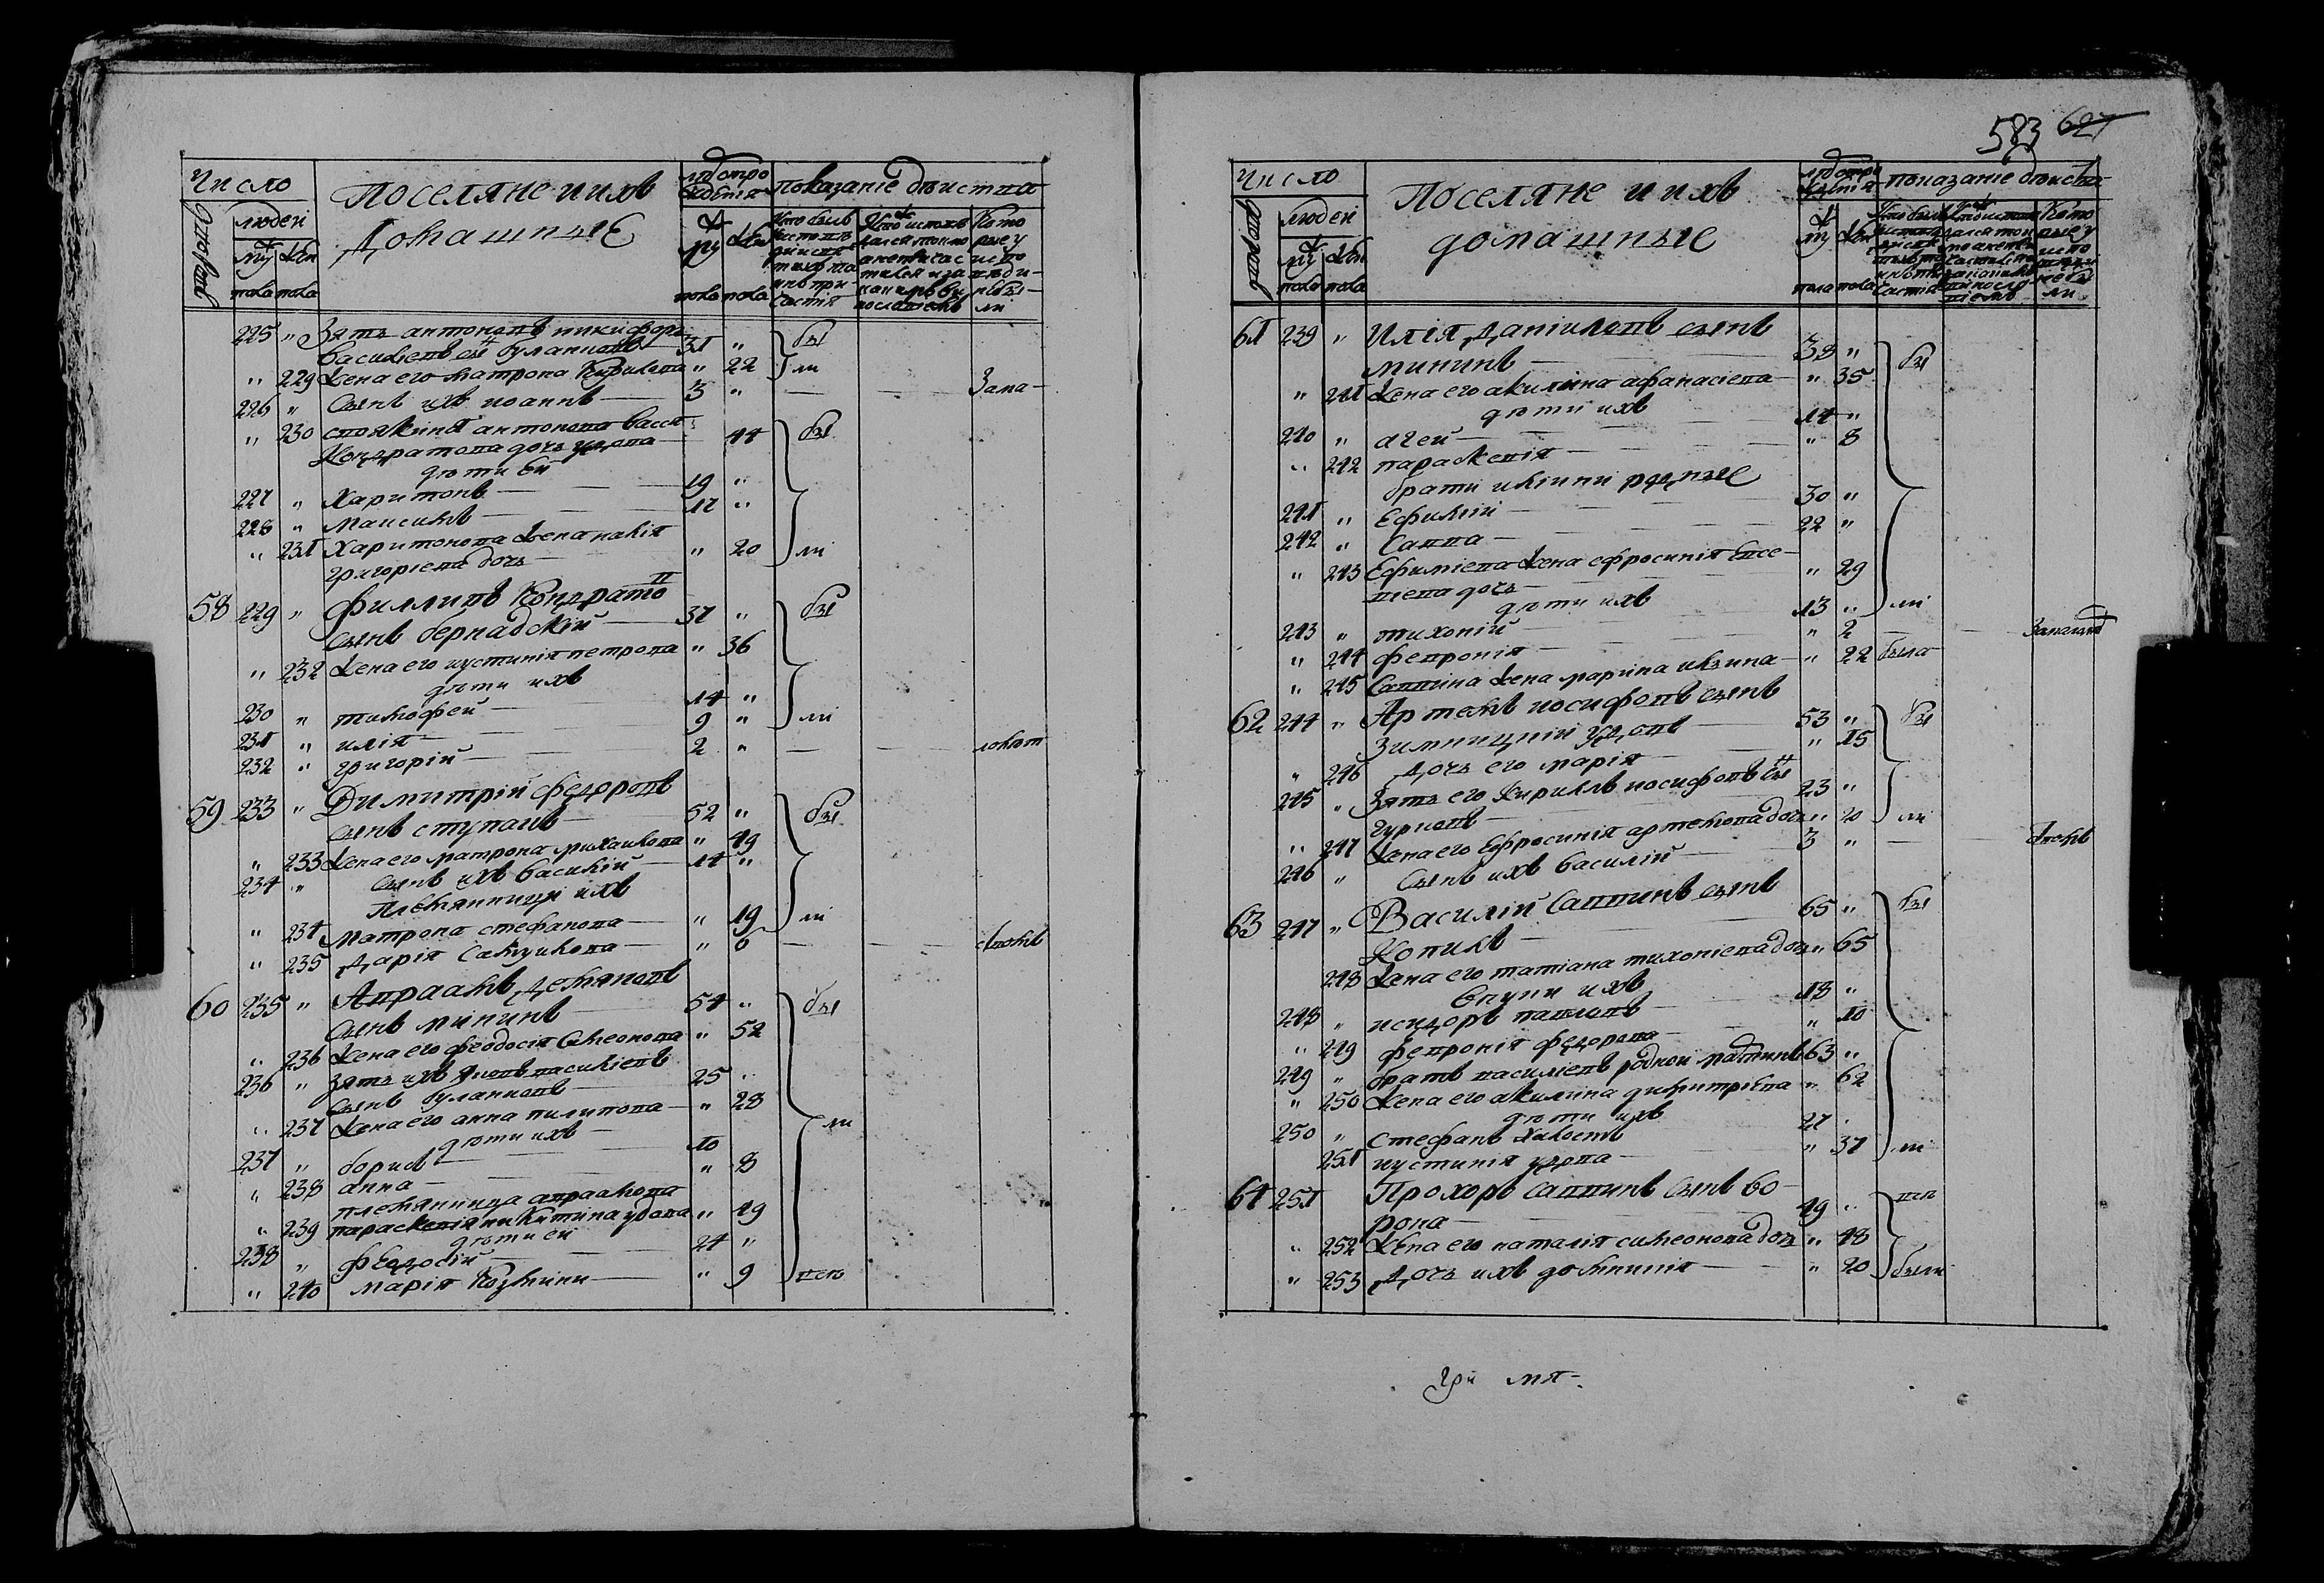 Число
Поселяне и ихъ
домашныє
лѣто ро
ждения
показаніе дѣиства
дворовъ
людеі
му
жен
пола
пола
му
жен
пола
пола
Кото
рые у
ли
225 " Зять антоновъ никифоръ
василіевъ сынъ булавиновъ 31 " бы
" 229 Жена его матрона Кирилова " 22 ли
226 " Сынъ ихъ иоаннъ 3 " — — Зама
" 230 своякиня антонова васса
Кондратова дочь удова 44 бы
дѣти ей
227 " Харитонъ 19 "
228 " Максимъ 17 "
" 231 Харитонова жена макія
григоріева дочь " 20 ли
58 229 " Филлипъ Кондрато
сынъ бернадскій 37 " бы
" 232 Жена его иустинія петрова " 36
дѣти ихъ
230 " тимофей 14 "
231 " илія 9 " ли
232 " григорій 2 " — —
59 233 " Димитрій федоровъ
сынъ ступакъ 52 " бы
" 233 Жена его матрона михаилова " 49
234 " сынъ ихъ василій 14 "
Племянници ихъ
" 234 Матрона стефанова " 19 ли
" 235 Дарія Самуилова " 6 — —
60 235 " Авраамъ Демяновъ
сынъ мининъ 54 " бы
" 236 Жена его феодосія Симеонова " 52
236 " Зять ихъ василіевъ
сынъ булавиновъ 25 "
" 237 Жена его анна пилипова " 28 ли
дѣти ихъ
237 " борисъ 10
" 238 анна " 8
племянница авраамова
" 239 параскевія никитина удова " 49
дѣти ей
238 " федосій 24 "
" 240 марія Козмини " 9
583 627
Число
Поселяне и ихъ
домашные
показаніе дѣиства
дворовъ
людеі
му
жен
пола
пола
му
жен
пола
пола
61 239 " Илія Даніиловъ сынъ
мининъ 38 " бы
" 241 Жена его акилина афанасіева " 35
дѣти ихъ
240 " агей 14 "
" 242 параскевія " 8
брати илііни родные
241 " Ефимій 30 "
242 " Савва 22 "
" 243 Ефиміева жена ефросинія Евсе
піева дочь " 29
дѣти ихъ
243 " тихоній 13 " ли
" 244 феvронія " 2 — —
" 245 Саввина жена марина илина " 22 была
62 244 " Артемъ иосифовъ сынъ
Зимницкій удовъ 53 " бы
" 246 Дочь его марія " 15
245 " Зять его Кирилъ иосифовъ сынъ
гурновъ 23 "
" 247 Жена его Ефросинія артемова дочь " 20 ли
246 " Сынъ ихъ василій 3 " — —
63 247 " Василій Саввинъ сынъ
Копилъ 65 " бы
248 Жена его татіана тихоніева дочь " 65
внуки ихъ
248 " исидоръ павловъ 18 "
" 249 феvронія федорова " 10
249 " братъ василіевъ родной мартинъ 63 "
" 250 Жена его акилина димитріева " 62
дѣти ихъ
250 " стефанъ холостъ 27 "
251 иустинія удова " 37 ли
64 251 Прохоръ саввинъ сынъ во
рона 49 "
" 252 Жена его наталія симеонова дочь " 48
" 253 Дочь ихъ домникія " 20 были